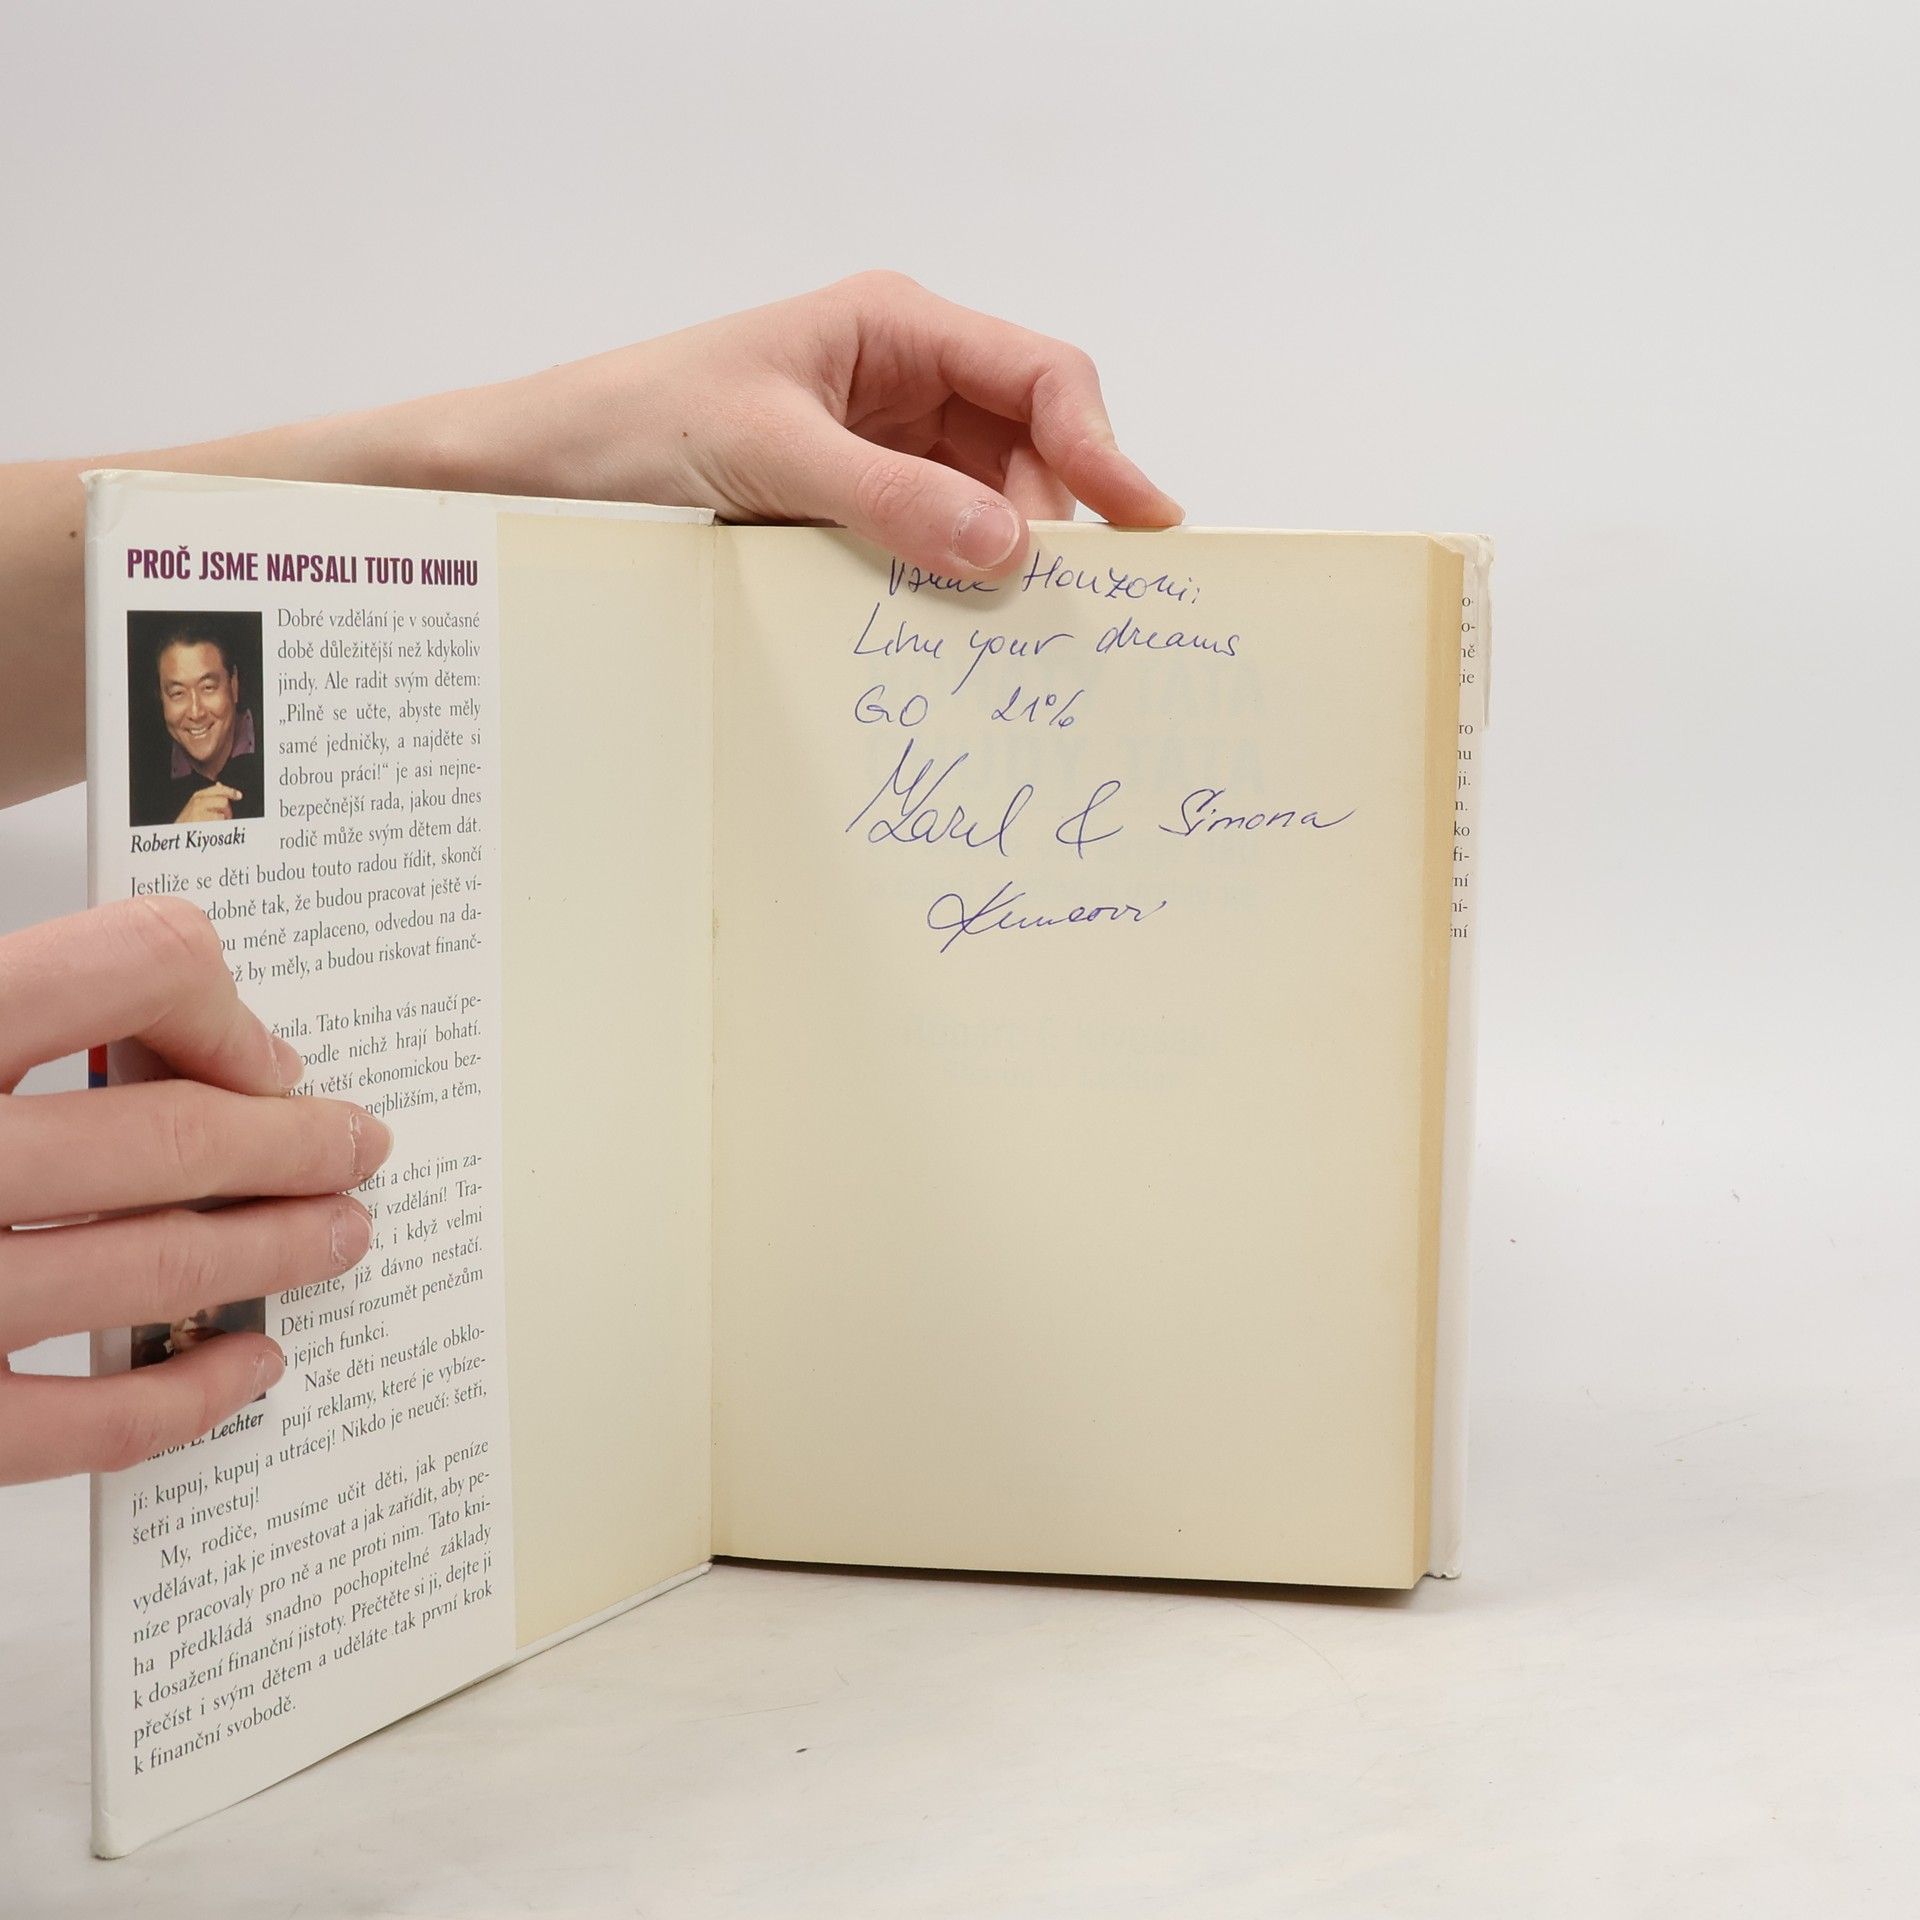 PROČ JSME NAPSALI TUTO KNIHU
Dobré vzdělání je v současné
době důležitější než kdykoliv
jindy. Ale radit svým dětem:
„Pilně se učte, abyste měly
samé jedničky, a najděte si
dobrou práci!“ je asi nejne-
bezpečnější rada, jakou dnes
rodič může svým dětem dát.
Robert Kiyosaki
Jestliže se děti budou touto radou řídit, skončí
dobně tak, že budou pracovat ještě ví-
ou méně zaplaceno, odvedou na da-
ež by měly, a budou riskovat finanč-
ěnila. Tato kniha vás naučí pe-
podle nichž hrají bohatí.
stí větší ekonomickou bez-
nejbližším, a těm,
děti a chci jim za-
ší vzdělání! Tra-
ví, i když velmi
důležité, již dávno nestačí.
Děti musí rozumět penězům
a jejich funkci.
Naše děti neustále obklo-
pují reklamy, které je vybíze-
L. Lechter
jí: kupuj, kupuj a utrácej! Nikdo je neučí: šetři,
šetři a investuj!
My, rodiče, musíme učit děti, jak peníze
vydělávat, jak je investovat a jak zařídit, aby pe-
níze pracovaly pro ně a ne proti nim. Tato kni-
ha předkládá snadno pochopitelné základy
k dosažení finanční jistoty. Přečtěte si ji, dejte ji
přečíst i svým dětem a uděláte tak první krok
k finanční svobodě.
Honzovi:
your dreams
GO 21%
Karel & Simona